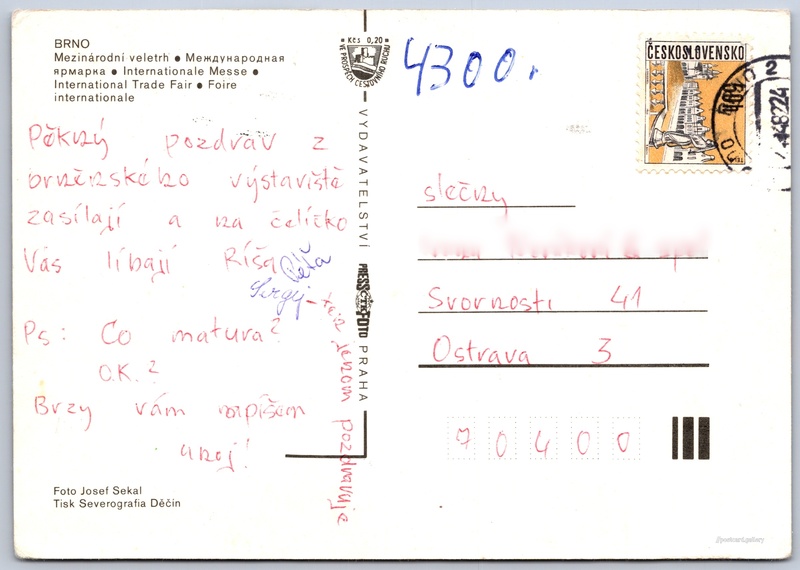 BRNO
Mezinárodní veletrh ● Международная
ярмарка ● Internationale Messe ●
International Trade Fair ● Foire
internationale
Pěkný pozdrav z
brněnského výstaviště
zasílají a na čelíčko
Vás líbají Ríša Péťa
Sergij - ten jenom pozdravuje
Ps: Co matura?
O.K.?
Brzy vám napíšem
ahoj!
Foto Josef Sekal
Tisk Severografia Děčín
Kčs 0,20
VE PROSPĚCH CESTOVNÍHO RUCHU
VYDAVATELSTVÍ PRESSFOTO PRAHA
ČTK
4300.
ČESKOSLOVENSKO
slečny
Svornosti 41
Ostrava 3
70400
//postcard.gallery